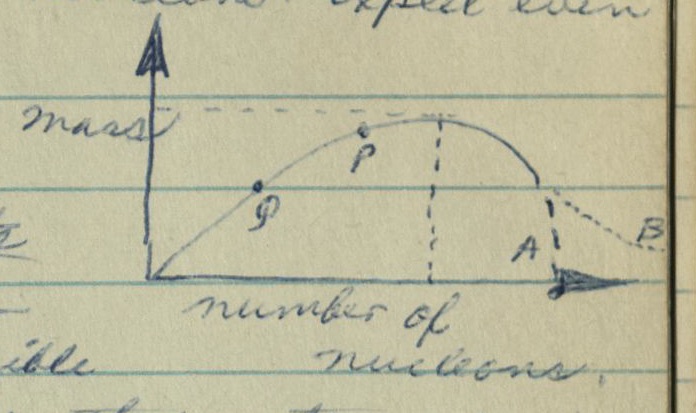 expect even
mass
P
P
B
A
number of
nucleons.
ible